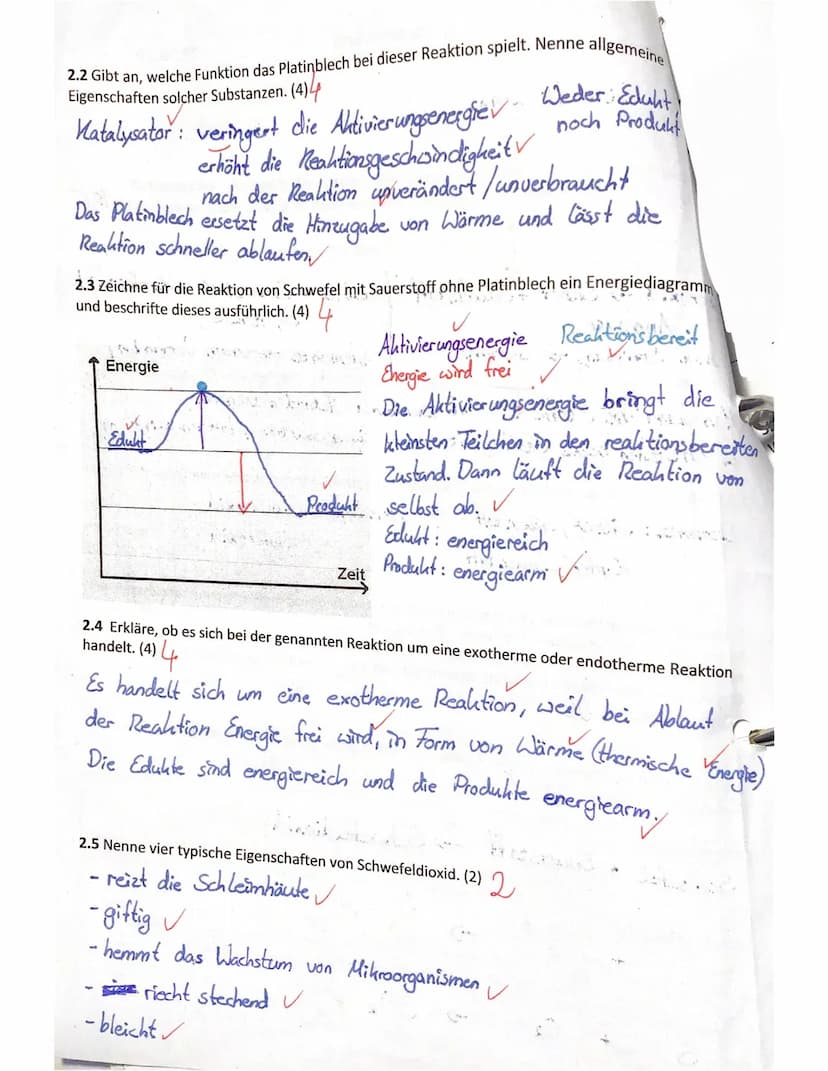 2.2 Gibt an, welche Funktion das Platinblech bei dieser Reaktion spielt. Nenne allgemeine
Eigenschaften solcher Substanzen. (4) 4
Katalysator: veringert die Aktivierungsenergie
Weder: Edukt
noch Produkt
erhöht die Reaktionsgeschwindigkeit
nach der Reaktion unverändert/unverbraucht
Das Platinblech ersetzt die Hinzugabe von Wärme und lässt die
Reaktion schneller ablaufen.
2.3 Zeichne für die Reaktion von Schwefel mit Sauerstoff ohne Platinblech ein Energiediagramm
und beschrifte dieses ausführlich. (4) 4
Energie
Edukt
Produkt
Zeit
Aktivierungsenergie Reaktionsbereit
Energie wird frei
Die Aktivierungsenergie bringt die
kleinsten Teilchen in den reaktionsbereiten
Zustand. Dann läuft die Reaktion von
selbst ab.
Edukt: energiereich
Produkt: energiearm
2.4 Erkläre, ob es sich bei der genannten Reaktion um eine exotherme oder endotherme Reaktion
handelt. (4) 4
Es handelt sich um eine exotherme Reaktion, weil bei Ablauf
der Reaktion Energie frei wird, in Form von Wärme (thermische Energie)
Die Edukte sind energiereich und die Produkte energiearm.
2.5 Nenne vier typische Eigenschaften von Schwefeldioxid. (2) 2
- reizt die Schleimhäute
- giftig
- hemmt das Wachstum von Mikroorganismen
- riecht stechend
- bleicht